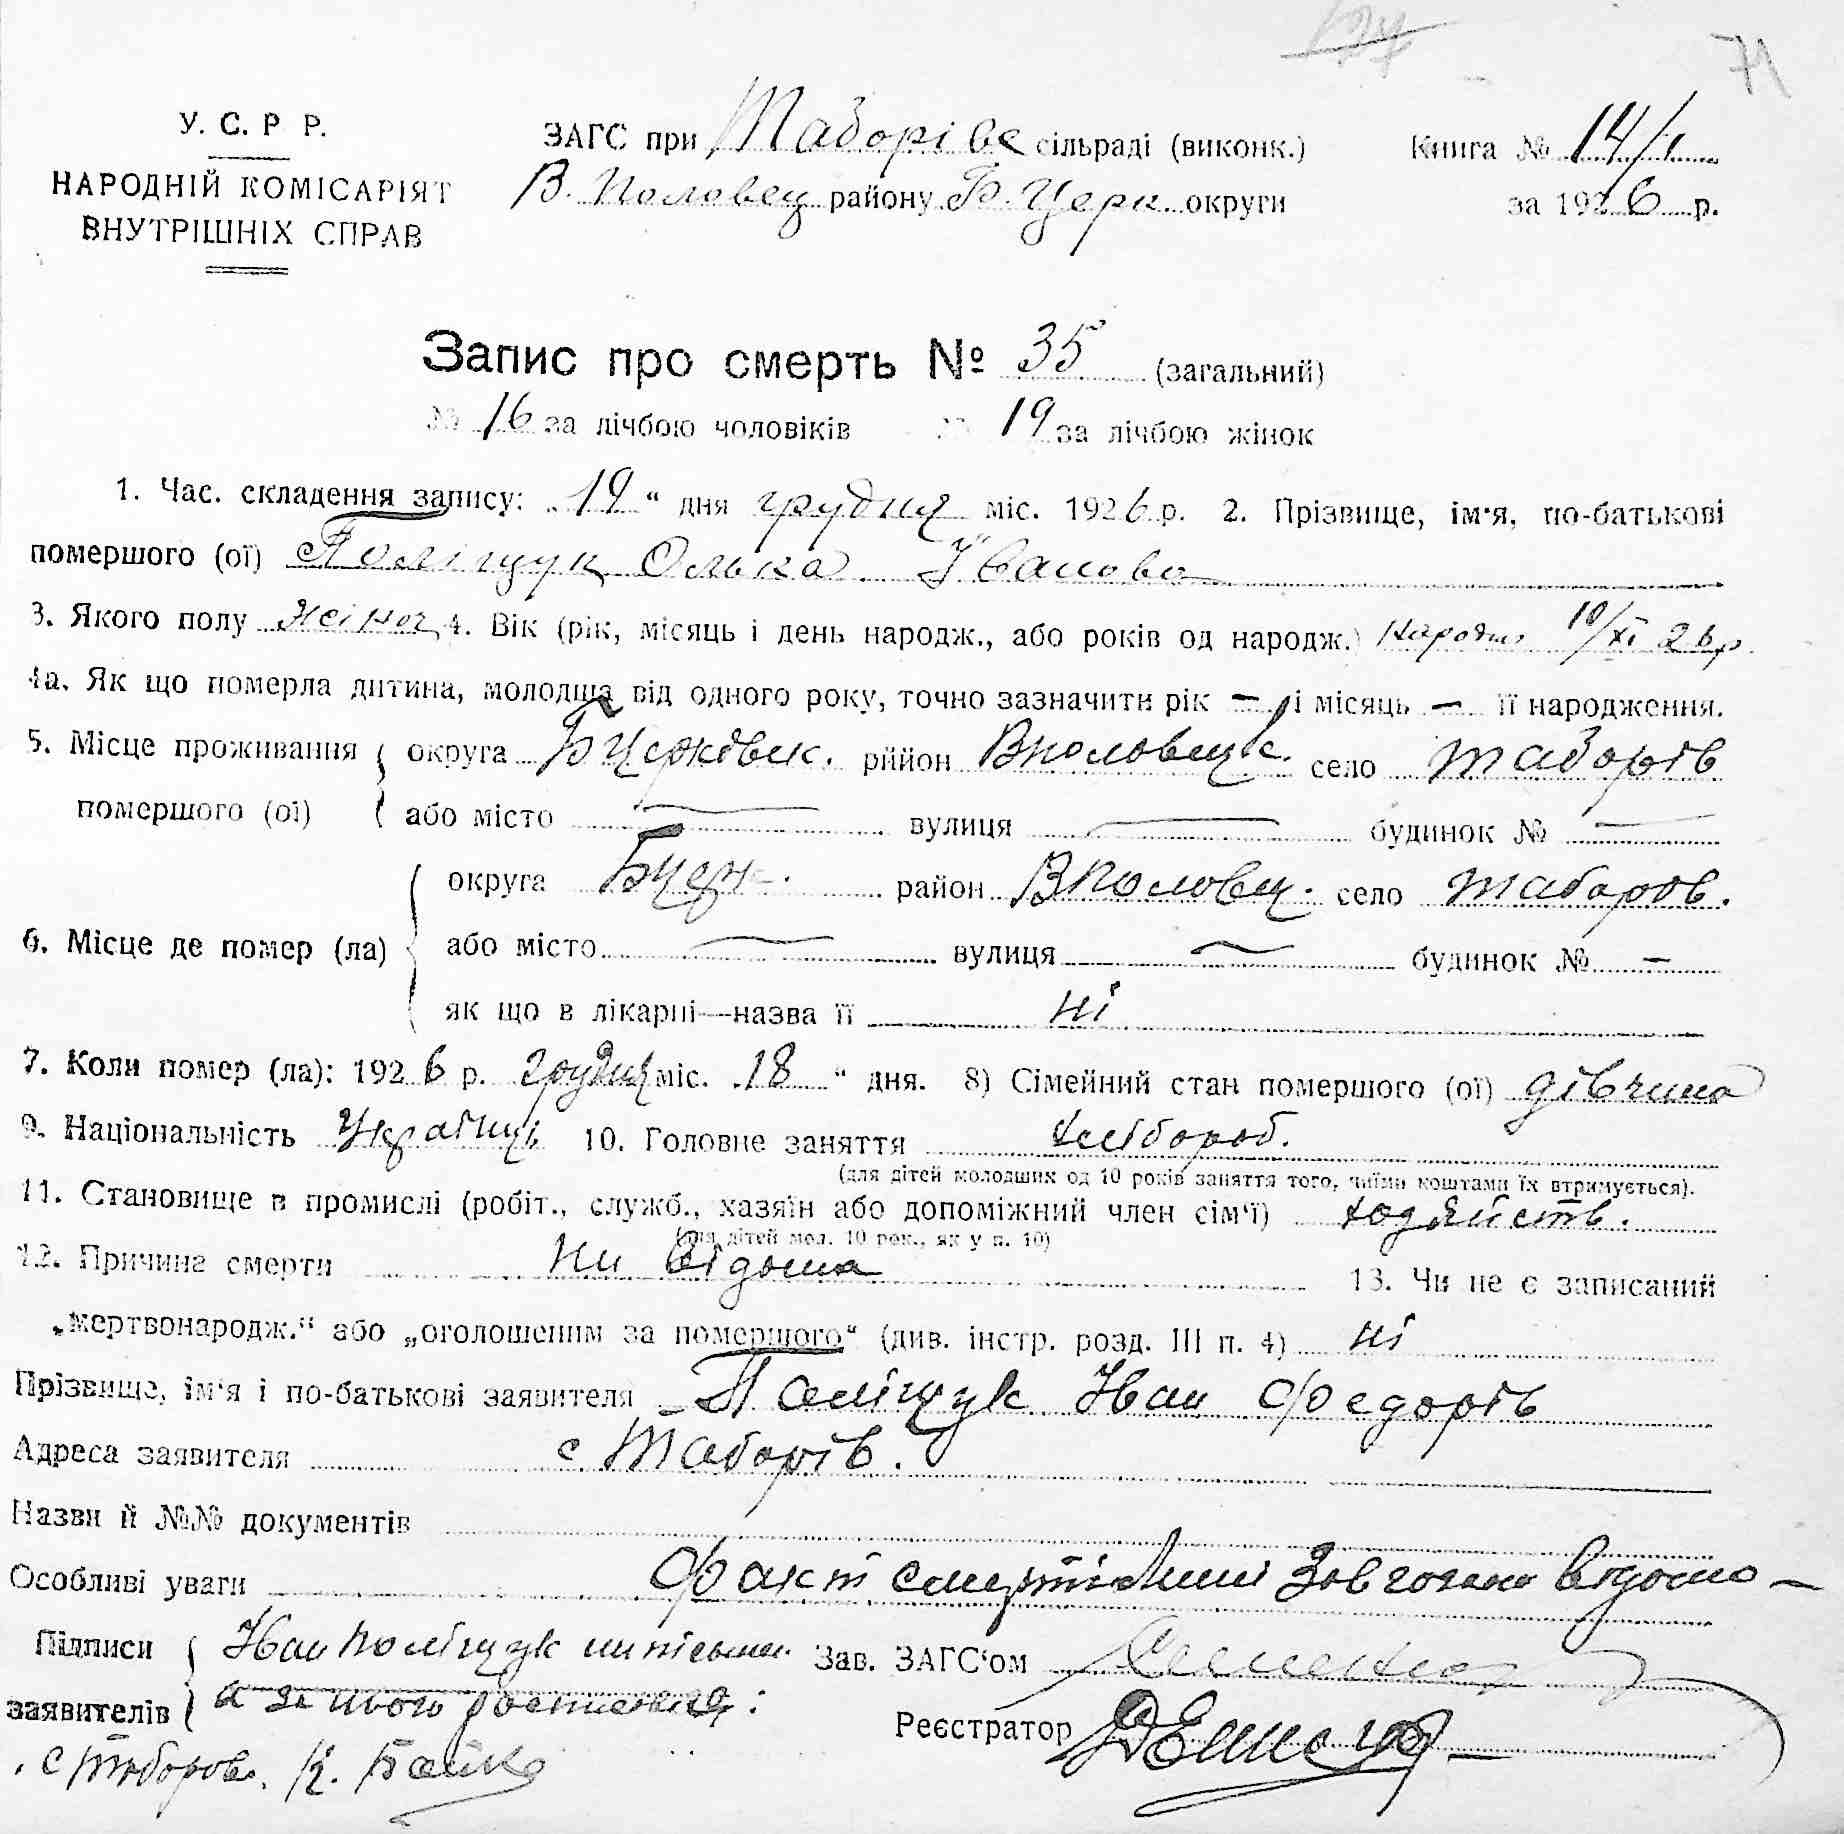 127
71
У. С. Р Р.
НАРОДНІЙ КОМІСАРІЯТ
ВНУТРІШНІХ СПРАВ
ЗАГС при Таборівс сільраді (виконк.)
В. Половец району Б. Церк округи
Книга № 14/1
за 1926 р.
Запис про смерть № 35 (загальний)
№ 16 за лічбою чоловіків № 19 за лічбою жінок
1. Час. складення запису: „19“ дня грудня міс. 1926 р. 2. Прізвище, ім‘я, по-батькові
помершого (ої) Поліщук Олька Іванова
3. Якого полу жіноч 4. Вік (рік, місяць і день народж., або років од народж.) Народж 10/XI 26 р
4а. Як що померла дитина, молодша від одного року, точно зазначити рік — і місяць — її народження.
5. Місце проживання округа БЦерківск. район Вполовецьк. село Таборів
помершого (ої) або місто — вулиця — будинок № —
округа Бцерк. район Вполовец. село Таборов.
6. Місце де помер (ла) або місто — вулиця — будинок № —
як що в лікарні—назва її ні
7. Коли помер (ла): 1926 р. грудня міс. „18“ дня. 8) Сімейний стан помершого (ої) дівчина
9. Національність Українц 10. Головне заняття хлібороб.
(для дітей молодших од 10 років заняття того, чиїми коштами їх втримується).
11. Становище в промислі (робіт., служб., хазяїн або допоміжний член сім‘ї)
(для дітей мол. 10 рок., як у п. 10)
12. Причина смерти ни відома 13. Чи не є записаний
„мертвонародж.“ або „оголошеним за помершого“ (див. інстр. розд. III п. 4) ні
Прізвище, ім‘я і по-батькові заявителя Поліщук Иван Федорів
Адреса заявителя с Таборів.
Назви й №№ документів
Особливі уваги Факт смерті відомо
Підписи Иван Поліщук нипісьмен Зав. ЗАГС‘ом
заявителів а за нього росписався: Реєстратор
с Таборов. К. Бойко